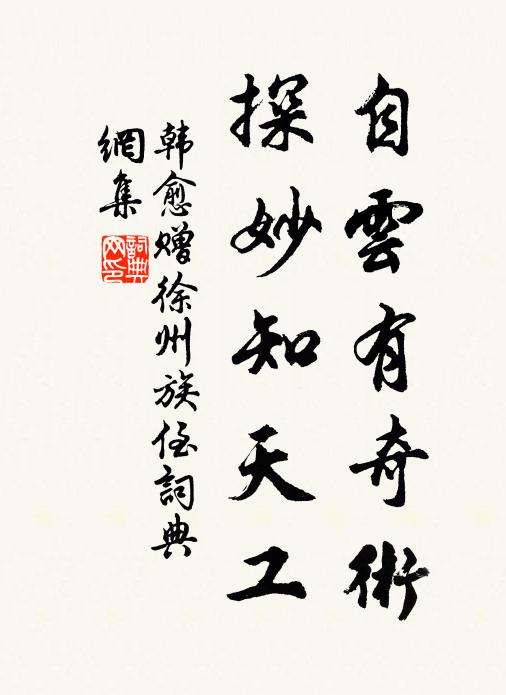 自雲有奇術
探妙知天工
韩愈赠徐州族侄詞典
網集
詞典
网印